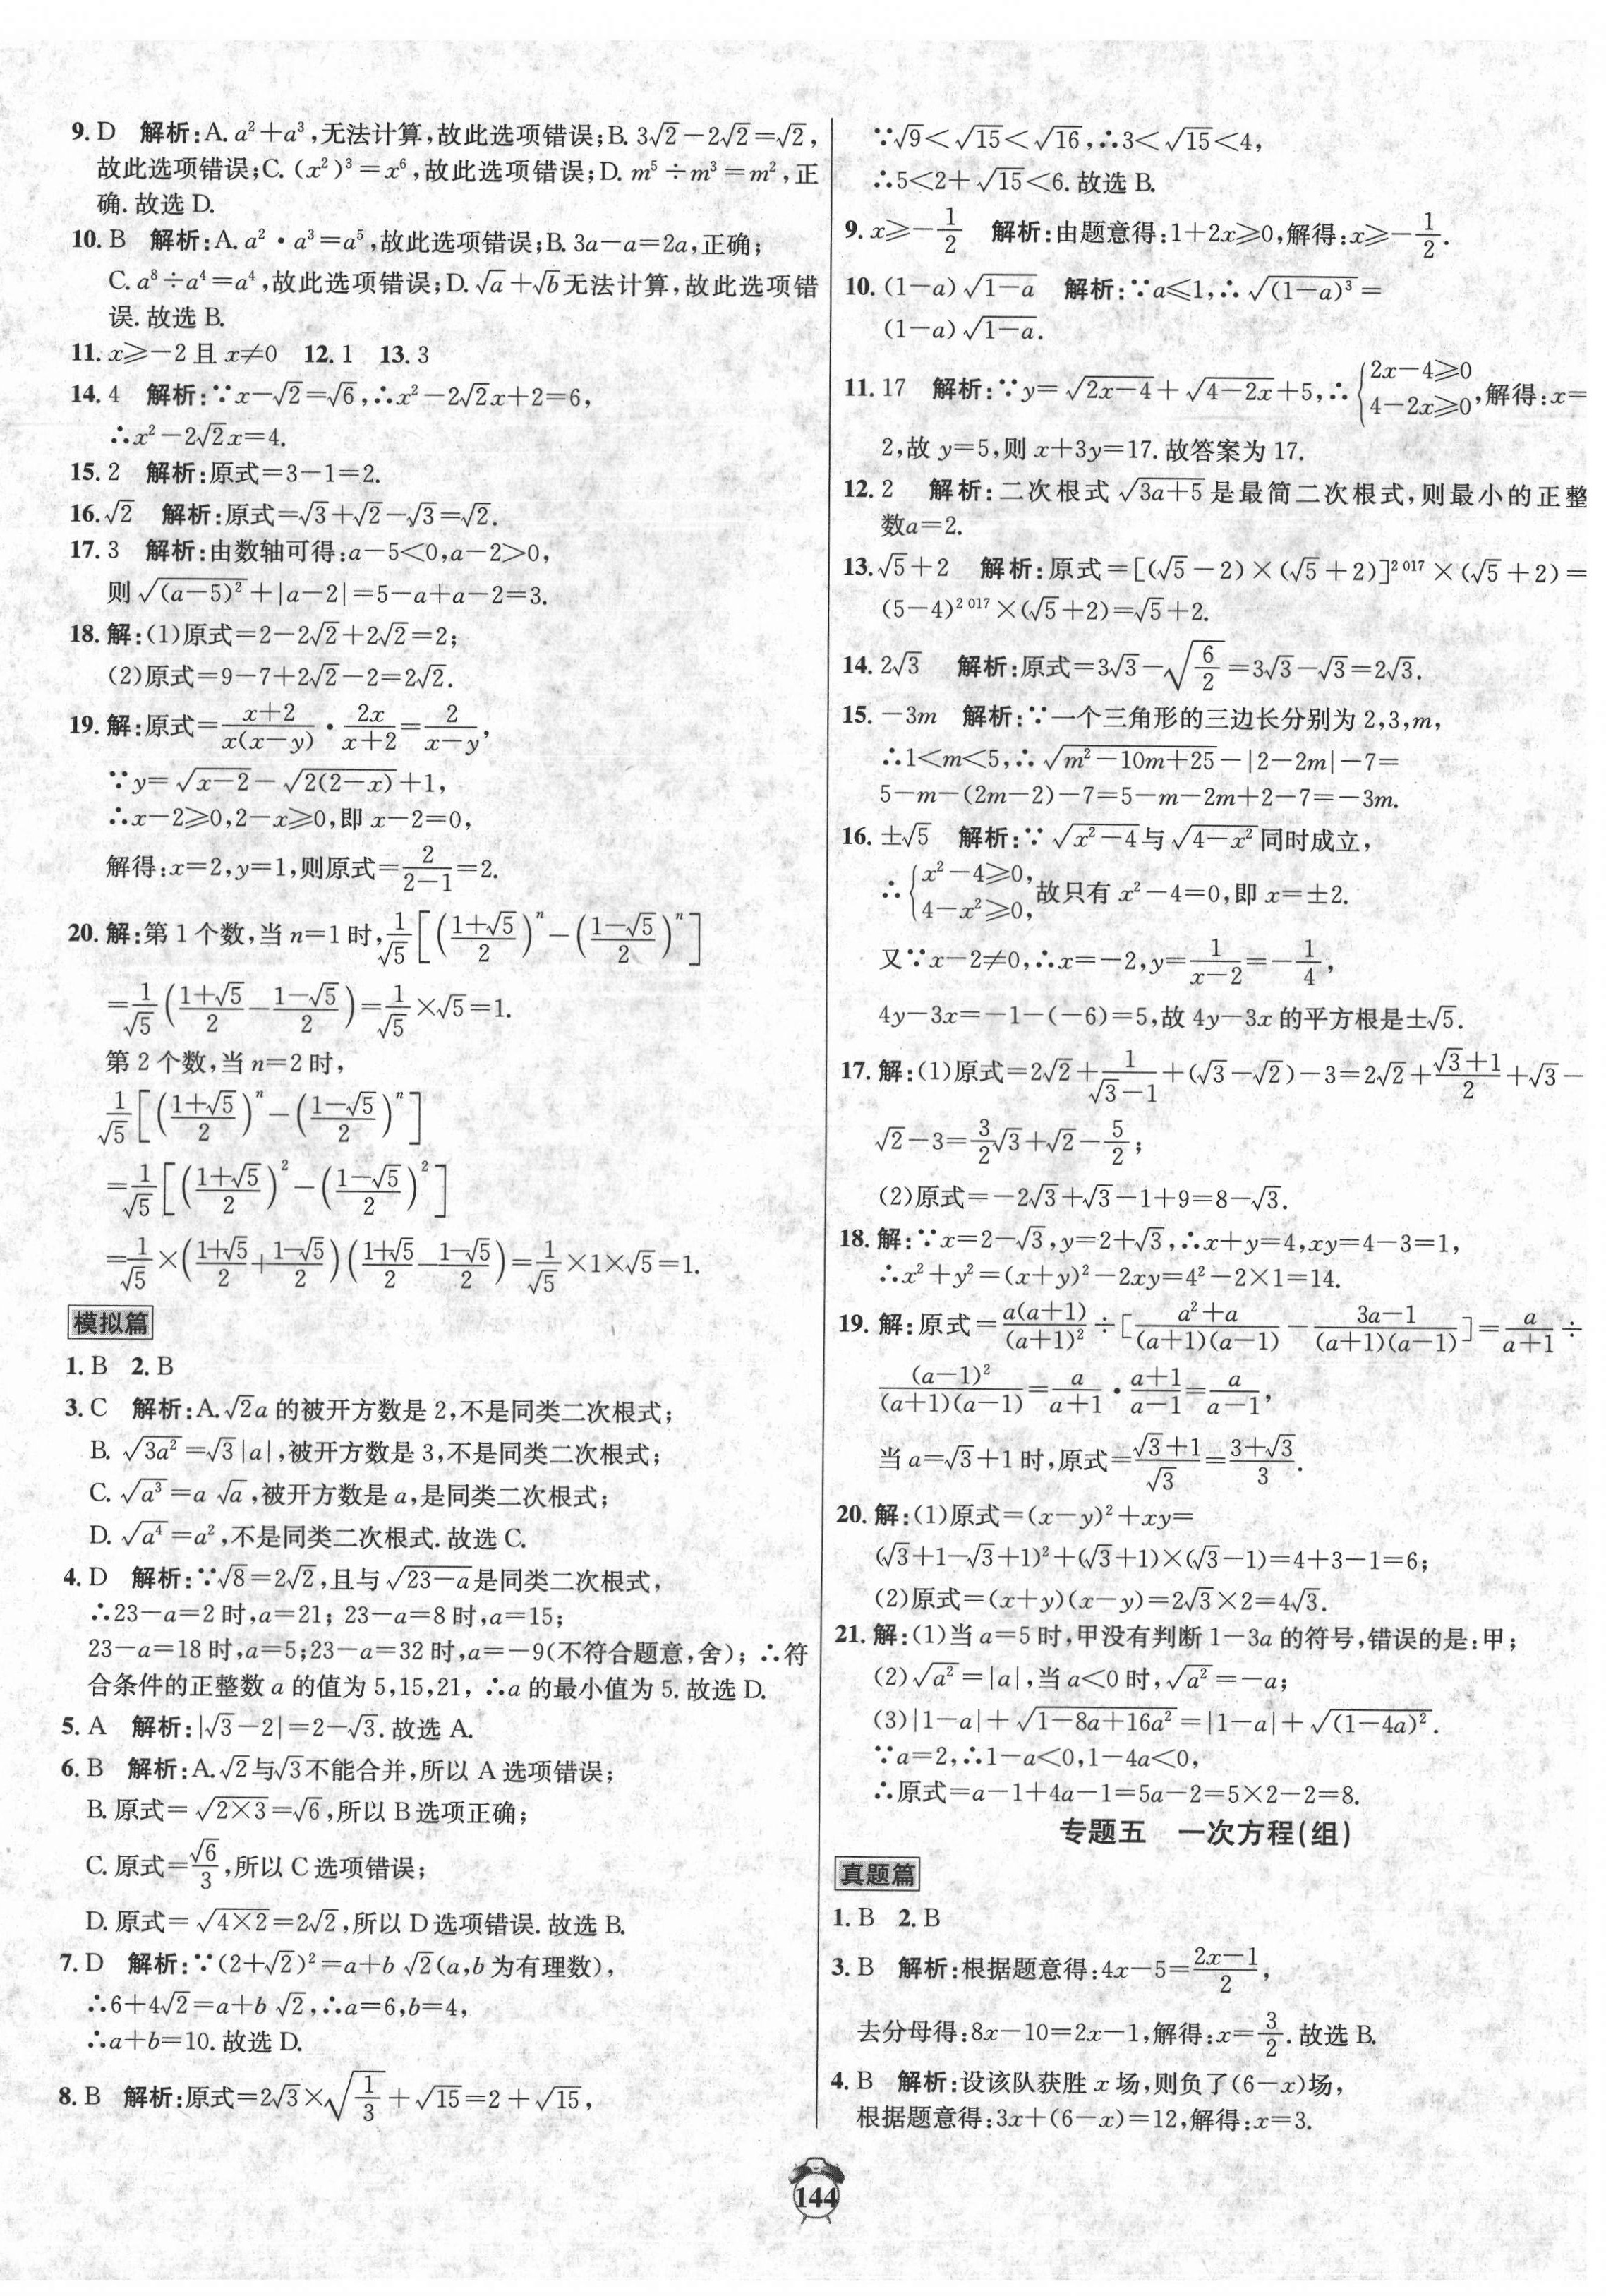 9. D　解析:A. a²+a³,无法计算,故此选项错误;B. 3√2-2√2=√2,
故此选项错误;C. (x²)³=x⁶,故此选项错误;D. m⁵÷m³=m²,正
确. 故选 D.
10. B　解析:A. a²·a³=a⁵,故此选项错误;B. 3a-a=2a,正确;
C. a⁸÷a⁴=a⁴,故此选项错误;D. √a+√b无法计算,故此选项错
误. 故选 B.
11. x≥-2 且 x≠0　12. 1　13. 3
14. 4　解析:∵x-√2=√6,∴x²-2√2x+2=6,
∴x²-2√2x=4.
15. 2　解析:原式=3-1=2.
16. √2　解析:原式=√3+√2-√3=√2.
17. 3　解析:由数轴可得:a-5<0,a-2>0,
则√((a-5)²)+|a-2|=5-a+a-2=3.
18. 解:(1)原式=2-2√2+2√2=2;
(2)原式=9-7+2√2-2=2√2.
19. 解:原式=(x+2)/(x(x-y))·2x/(x+2)=2/(x-y),
∵y=√(x-2)-√(2(2-x))+1,
∴x-2≥0,2-x≥0,即 x-2=0,
解得:x=2,y=1,则原式=2/(2-1)=2.
20. 解:第 1 个数,当 n=1 时,1/√5[((1+√5)/2)ⁿ-((1-√5)/2)ⁿ]
=1/√5((1+√5)/2-(1-√5)/2)=1/√5×√5=1.
第 2 个数,当 n=2 时,
1/√5[((1+√5)/2)ⁿ-((1-√5)/2)ⁿ]
=1/√5[((1+√5)/2)²-((1-√5)/2)²]
=1/√5×((1+√5)/2+(1-√5)/2)((1+√5)/2-(1-√5)/2)=1/√5×1×√5=1.
模拟篇
1. B　2. B
3. C　解析:A. √2a 的被开方数是 2,不是同类二次根式;
B. √(3a²)=√3|a|,被开方数是 3,不是同类二次根式;
C. √(a³)=a√a,被开方数是 a,是同类二次根式;
D. √(a⁴)=a²,不是同类二次根式. 故选 C.
4. D　解析:∵√8=2√2,且与√(23-a)是同类二次根式,
∴23-a=2 时,a=21; 23-a=8 时,a=15;
23-a=18 时,a=5;23-a=32 时,a=-9(不符合题意,舍); ∴符
合条件的正整数 a 的值为 5,15,21, ∴a 的最小值为 5. 故选 D.
5. A　解析:|√3-2|=2-√3. 故选 A.
6. B　解析:A. √2与√3不能合并,所以 A 选项错误;
B. 原式=√(2×3)=√6,所以 B 选项正确;
C. 原式=√6/3,所以 C 选项错误;
D. 原式=√(4×2)=2√2,所以 D 选项错误. 故选 B.
7. D　解析:∵(2+√2)²=a+b√2(a,b 为有理数),
∴6+4√2=a+b√2,∴a=6,b=4,
∴a+b=10. 故选 D.
8. B　解析:原式=2√3×√(1/3)+√15=2+√15,
∵√9<√15<√16,∴3<√15<4,
∴5<2+√15<6. 故选 B.
9. x≥-1/2　解析:由题意得:1+2x≥0,解得:x≥-1/2.
10. (1-a)√(1-a)　解析:∵a≤1,∴√((1-a)³)=
(1-a)√(1-a).
11. 17　解析:∵y=√(2x-4)+√(4-2x)+5,∴{2x-4≥0 4-2x≥0,解得:x=
2,故 y=5,则 x+3y=17. 故答案为 17.
12. 2　解析:二次根式√(3a+5)是最简二次根式,则最小的正整
数a=2.
13. √5+2　解析:原式=[(√5-2)×(√5+2)]²⁰¹⁷×(√5+2)=
(5-4)²⁰¹⁷×(√5+2)=√5+2.
14. 2√3　解析:原式=3√3-√(6/2)=3√3-√3=2√3.
15. -3m　解析:∵一个三角形的三边长分别为 2,3,m,
∴1<m<5,∴√(m²-10m+25)-|2-2m|-7=
5-m-(2m-2)-7=5-m-2m+2-7=-3m.
16. ±√5　解析:∵√(x²-4)与√(4-x²)同时成立,
∴{x²-4≥0, 4-x²≥0,故只有 x²-4=0,即 x=±2.
又∵x-2≠0,∴x=-2,y=1/(x-2)=-1/4,
4y-3x=-1-(-6)=5,故 4y-3x 的平方根是±√5.
17. 解:(1)原式=2√2+1/(√3-1)+(√3-√2)-3=2√2+(√3+1)/2+√3-
√2-3=3/2√3+√2-5/2;
(2)原式=-2√3+√3-1+9=8-√3.
18. 解:∵x=2-√3,y=2+√3,∴x+y=4,xy=4-3=1,
∴x²+y²=(x+y)²-2xy=4²-2×1=14.
19. 解:原式=a(a+1)/(a+1)²÷[(a²+a)/((a+1)(a-1))-(3a-1)/((a+1)(a-1))]=a/(a+1)÷
(a-1)²/((a+1)(a-1))=a/(a+1)·(a+1)/(a-1)=a/(a-1),
当 a=√3+1 时,原式=(√3+1)/√3=(3+√3)/3.
20. 解:(1)原式=(x-y)²+xy=
(√3+1-√3+1)²+(√3+1)×(√3-1)=4+3-1=6;
(2)原式=(x+y)(x-y)=2√3×2=4√3.
21. 解:(1)当 a=5 时,甲没有判断 1-3a 的符号,错误的是:甲;
(2)√(a²)=|a|,当 a<0 时,√(a²)=-a;
(3)|1-a|+√(1-8a+16a²)=|1-a|+√((1-4a)²).
∵a=2,∴1-a<0,1-4a<0,
∴原式=a-1+4a-1=5a-2=5×2-2=8.
专题五　一次方程(组)
真题篇
1. B　2. B
3. B　解析:根据题意得:4x-5=(2x-1)/2,
去分母得:8x-10=2x-1,解得:x=3/2. 故选 B.
4. B　解析:设该队获胜 x 场,则负了(6-x)场,
根据题意得:3x+(6-x)=12,解得:x=3.
144